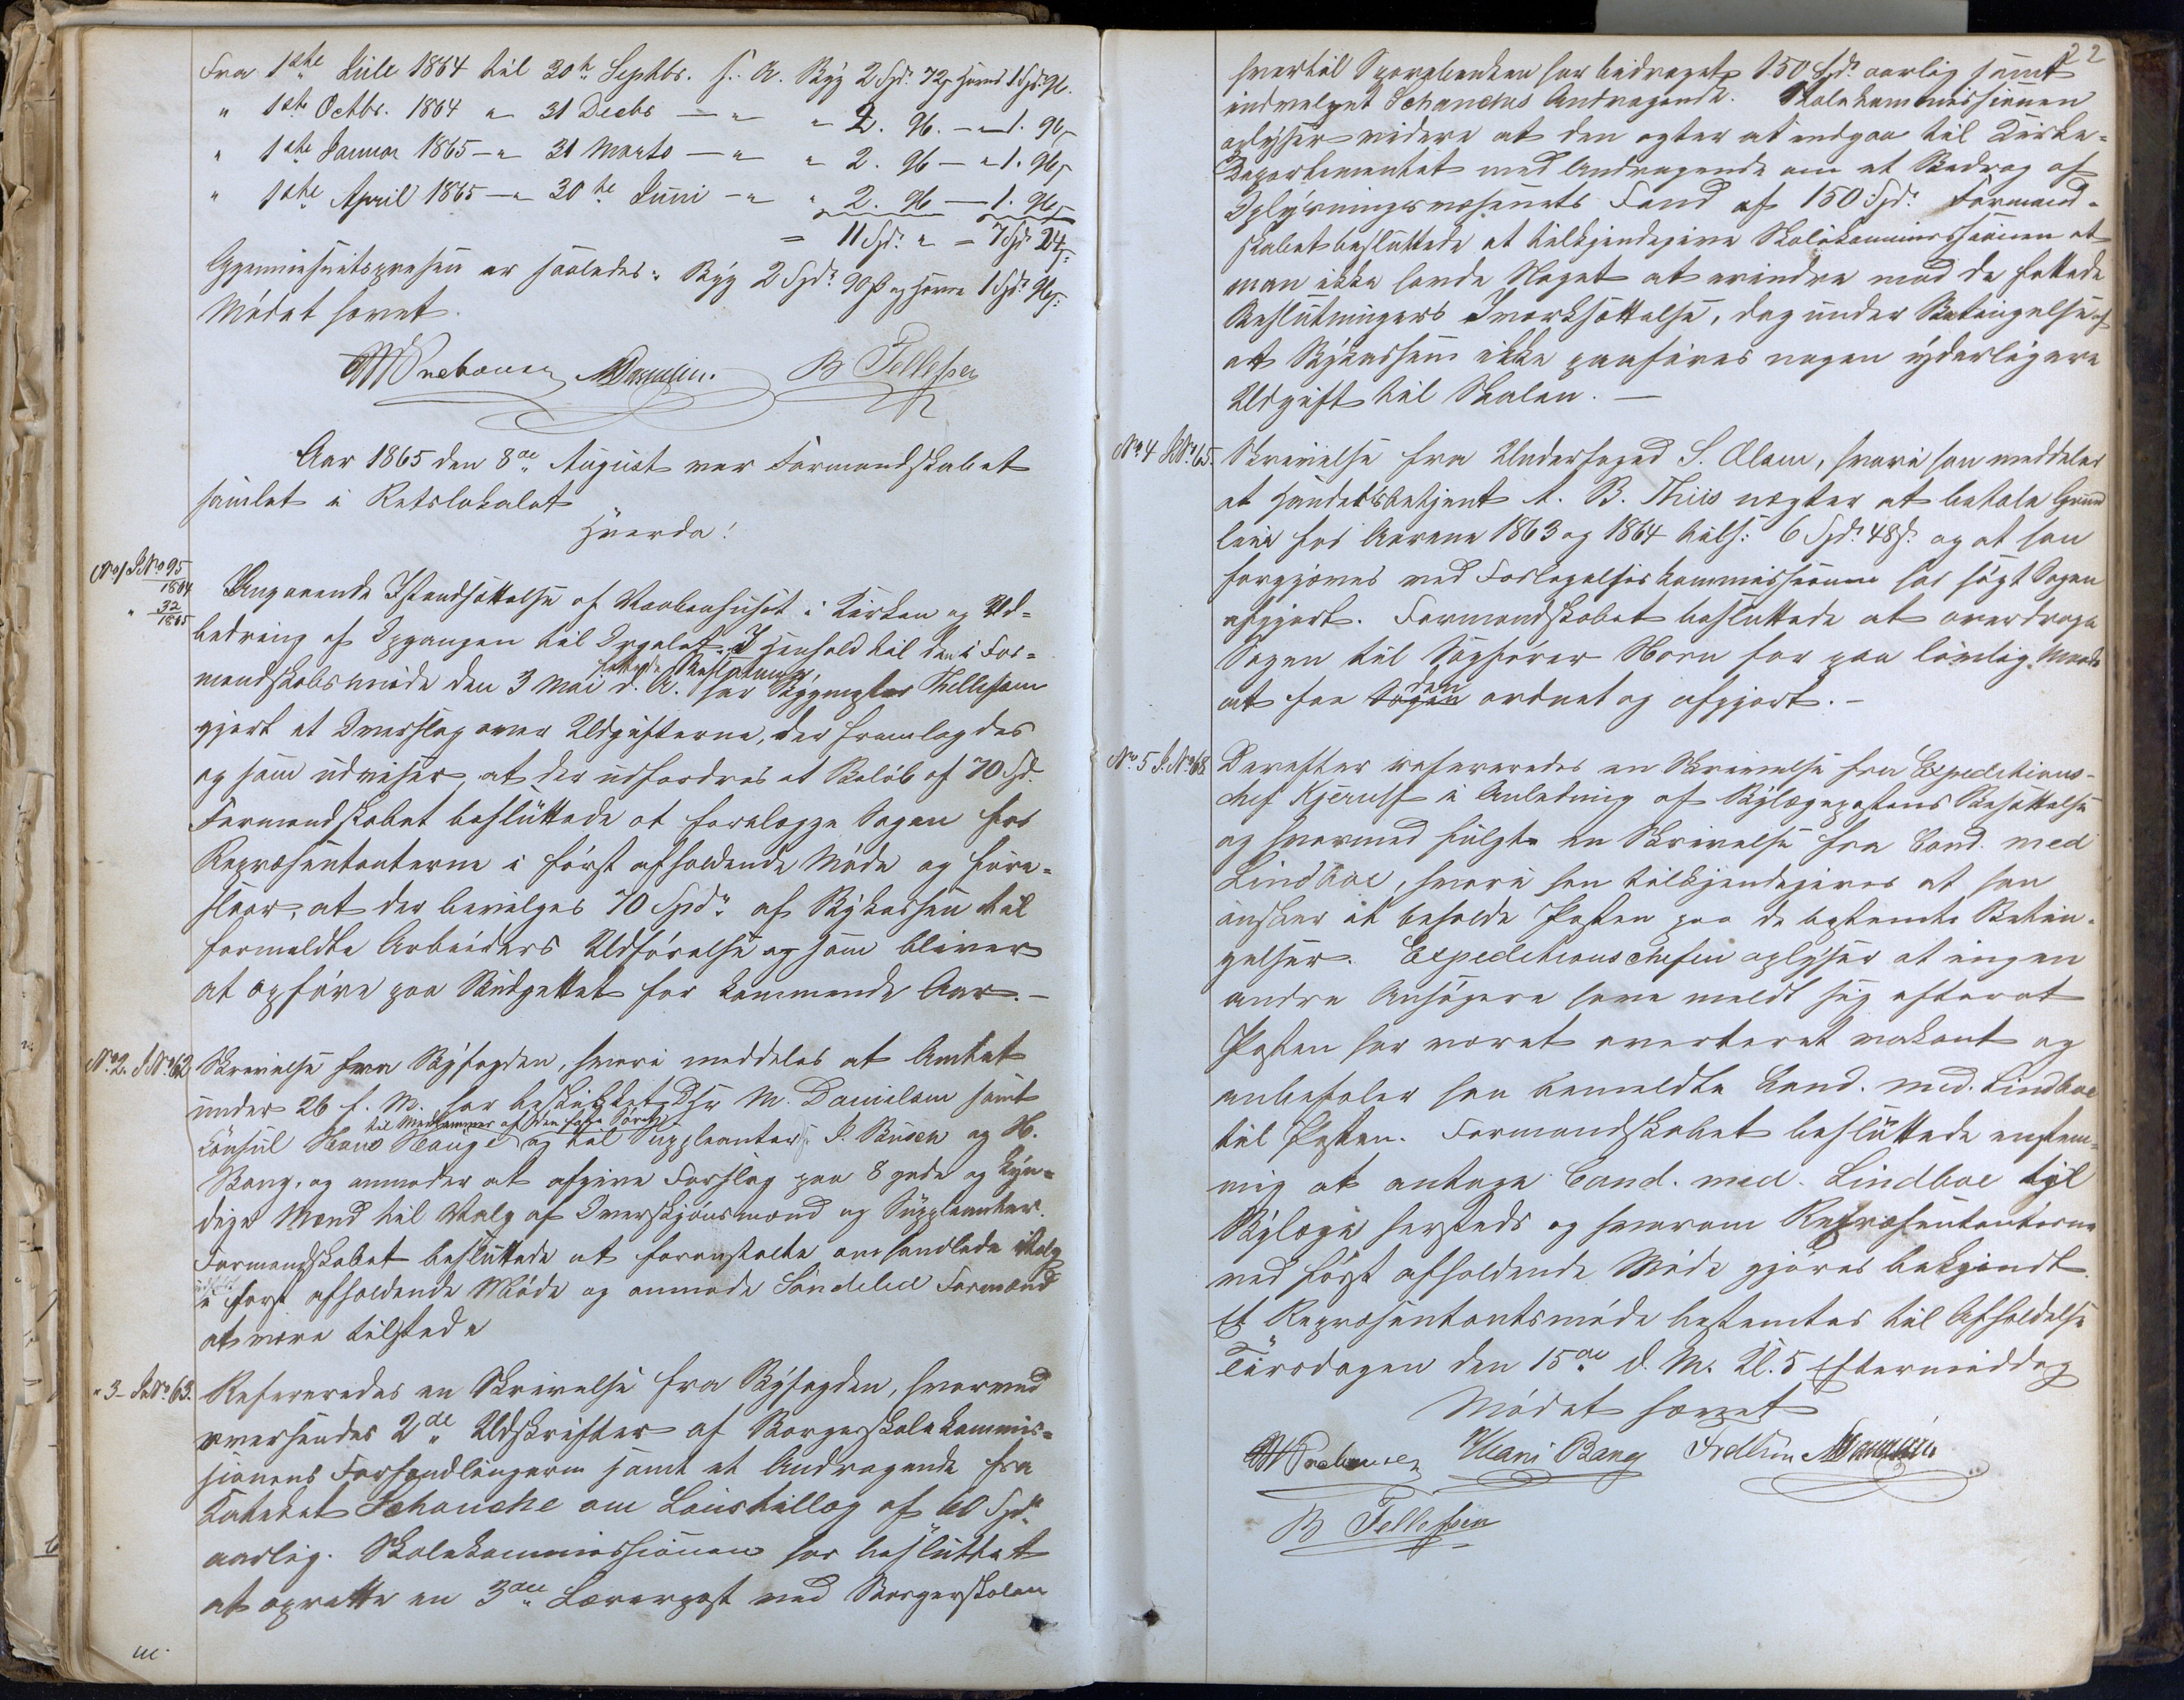 Fra 1ste Juli 1864 til 30te Septbr. s. A. Byg 2 Spd. 72 Havre 1 Spd. 96.
" 1ste Octbr. 1864 " 31 Decbr — " " 2. 96. — " 1. 96
" 1ste Januar 1865 — " 31 Marts — " " 2. 96 — " 1. 96
" 1ste April 1865 — " 30te Juni — " " 2. 96 — 1. 96
= 11 Spd. " = 7 Spd 24
Gjennemsnitsprisen er saaledes: Byg 2 Spd. 90 ß og Havre 1 Spd.
Mødet hævet.
M Prebensen M Danielsen. B Tellefsen
Aar 1865 den 8de August var Formandskabet
samlet i Retslokalet
Hvorda!
No 1 J No 95/1864
" 32/1865
Angaaende Istandsættelse af Vaabenhuset i Kirken og Ud-
bedring af Opgangen til Orgelet. I Henhold til den i For-
mandskabsmøde den 3 Mai d. A. fattede Beslutning, har Bygmester Tellefsen
gjort et Overslag over Udgifterne, der fremlagdes
og som udviser, at der udfordres et Beløb af 70 Spd.
Formandskabet besluttede at forelægge Sagen for
Repræsentanterne i først afholdende Møde og fore-
slaar, at der bevilges 70 Spd. af Bykassen til
formeldte Arbeiders Udførelse og som bliver
at opføre paa Budgettet for kommende Aar. —
No. 2. J No 62
Skrivelse fra Byfogden, hvori meddeles at Amtet
under 26 f. M. har beskikket Hr M. Danielsen samt
Consul Hans Hauge til Medlemmer af den faste Oversk. og til Suppleanter J. Busch og H.
Bang, og anmoder at afgive Forslag paa 8 gode og kyn-
dige Mænd til Valg af Overskjønsmænd og Suppleanter.
Formandskabet besluttede at foranstalte omhandlede Valg
udført i først afholdende Møde og anmode Søndeled Formænd
at være tilstede
" 3 - J. No. 63.
Refereredes en Skrivelse fra Byfogden, hvormed
oversendes 2de Udskrifter af Borgerskolekommis-
sionens Forhandlinger samt et Andragende fra
Katekét Schanche om Lønstillæg af 60 Spd.
aarlig. Skolekommissionen har besluttet
at oprette en 3die Lærerpost ved Borgerskolen
22
hvortil Sparebanken har bidraget 150 Spd. aarlig samt
indvalgt Schanches Andragende. Skolekommissionen
oplyser videre at den agter at indgaa til Kirke-
Departementet med Andragende om et Bidrag af
Oplysningsvæsenets Fond af 150 Spd. Formand-
skabet besluttede at tilkjendegive Skolekommissionen at
man ikke havde Noget at erindre mod de fattede
Beslutningers Iværksættelse, dog under Betingelse af
at Bykassen ikke paaføres nogen yderligere
Udgift til Skolen. —
No 4 J No. 65.
Skrivelse fra Underfoged S. Olsen, hvori han meddeler
at Handelsbetjent A. B. Thiis nægter at betale Grund
leie for Aarene 1863 og 1864 tils: 6 Spd. 48 ß. og at han
forgjæves ved Forligelseskommissionen har søgt Sagen
afgjort. Formandskabet besluttede at overdrage
Sagen til Sagfører Horn for paa lovlig Maade
at faa den ordnet og afgjort. —
No. 5 J. No 68
Derefter refereredes en Skrivelse fra Expeditions-
chef Kjerulf i Anledning af Bylægepostens Besættelse
og hvormed fulgte en Skrivelse fra Cand. med
Lindboe, hvori han tilkjendegiver at han
ønsker at beholde Posten paa de bestemte Betin-
gelser. Expeditionschefen oplyser at ingen
andre Ansøgere have meldt sig efterat
Posten har været averteret vakant og
anbefaler han bemeldte Cand. med. Lindboe
til Posten. Formandskabet besluttede enstem-
mig at antage Cand. med. Lindboe til
Bylæge hersteds og hvorom Repræsentanterne
ved først afholdende Møde gjøres bekjendt.
Et Repræsentantsmøde bestemtes til Afholdelse
Tirsdagen den 15de d. M. Kl. 5 Eftermiddag
Mødet hævet
M Prebensen Hans Bang M Danielsen
B Tellefsen